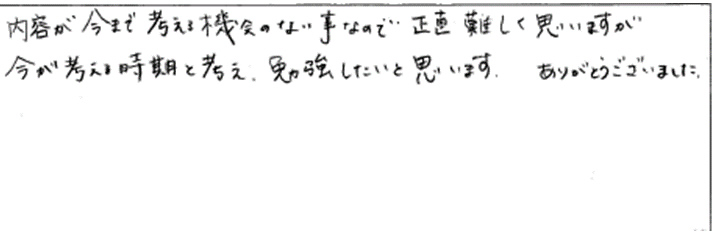 内容が今まで考える機会のない事なので正直難しく思いますが
今が考える時期と考え、勉強したいと思います。 ありがとうございました。